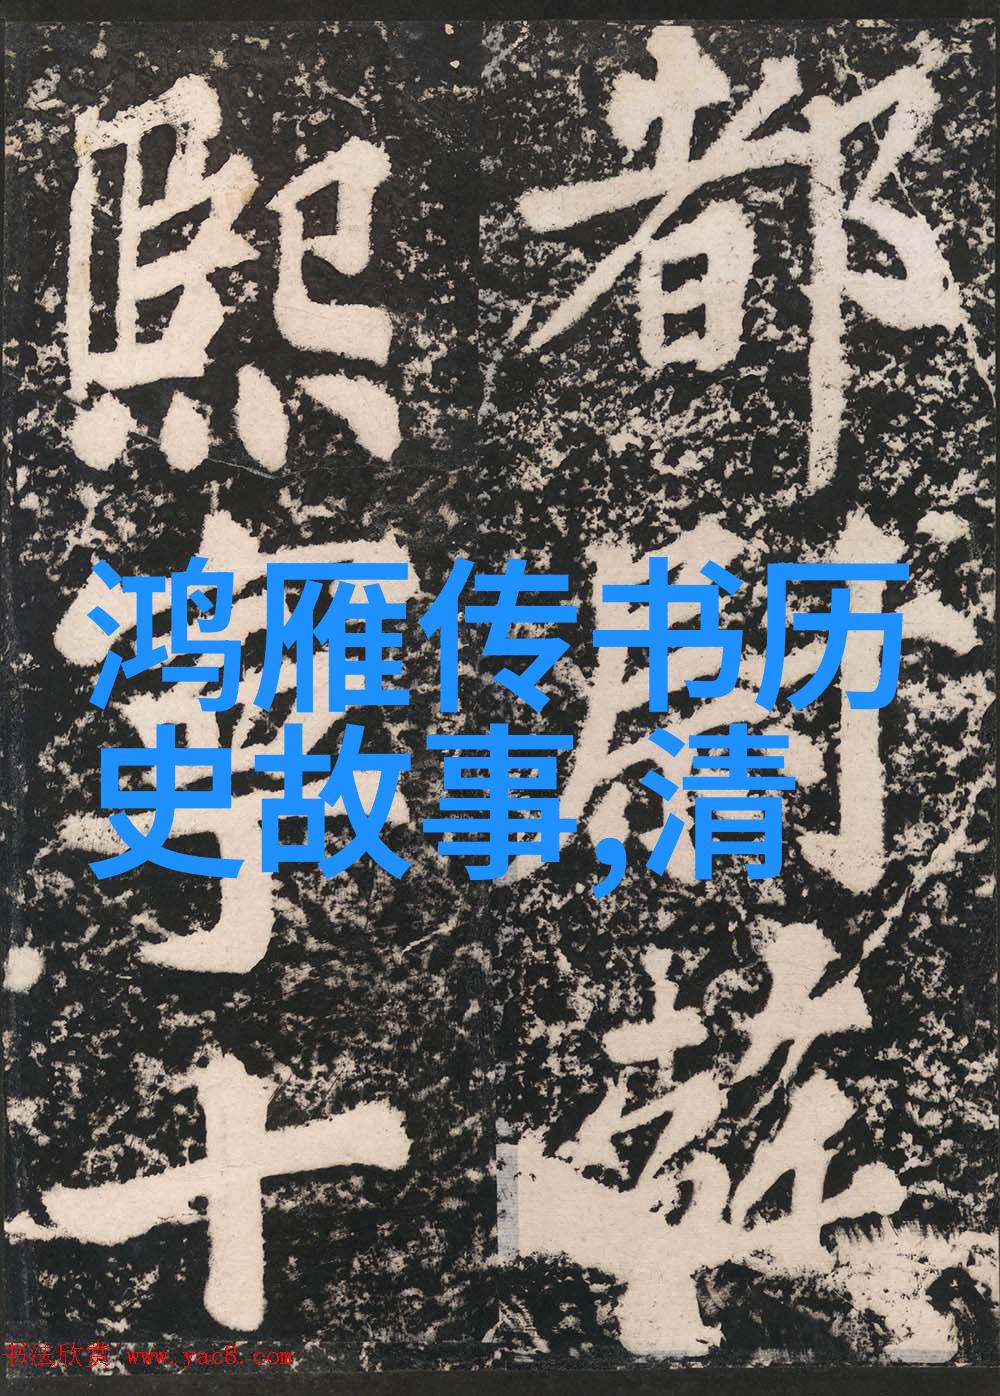 都
熙寧十
鸿雁传书历
史故事,清
书法欣赏 www.yac8.com